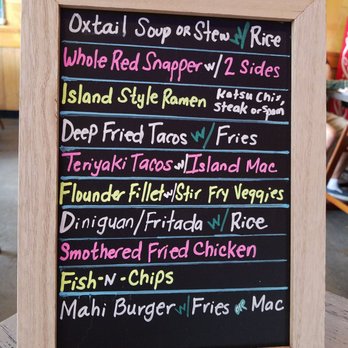 Oxtail Soup OR Stew w/ Rice
Whole Red Snapper w/ 2 Sides
Island Style Ramen Katsu Chix,
steak or Spam
Deep Fried Tacos w/ Fries
Teriyaki Tacos w/ Island Mac
Flounder Fillet w/ Stir Fry Veggies
Diniguan/Fritada w/ Rice
Smothered Fried Chicken
Fish-N-Chips
Mahi Burger w/ Fries OR Mac